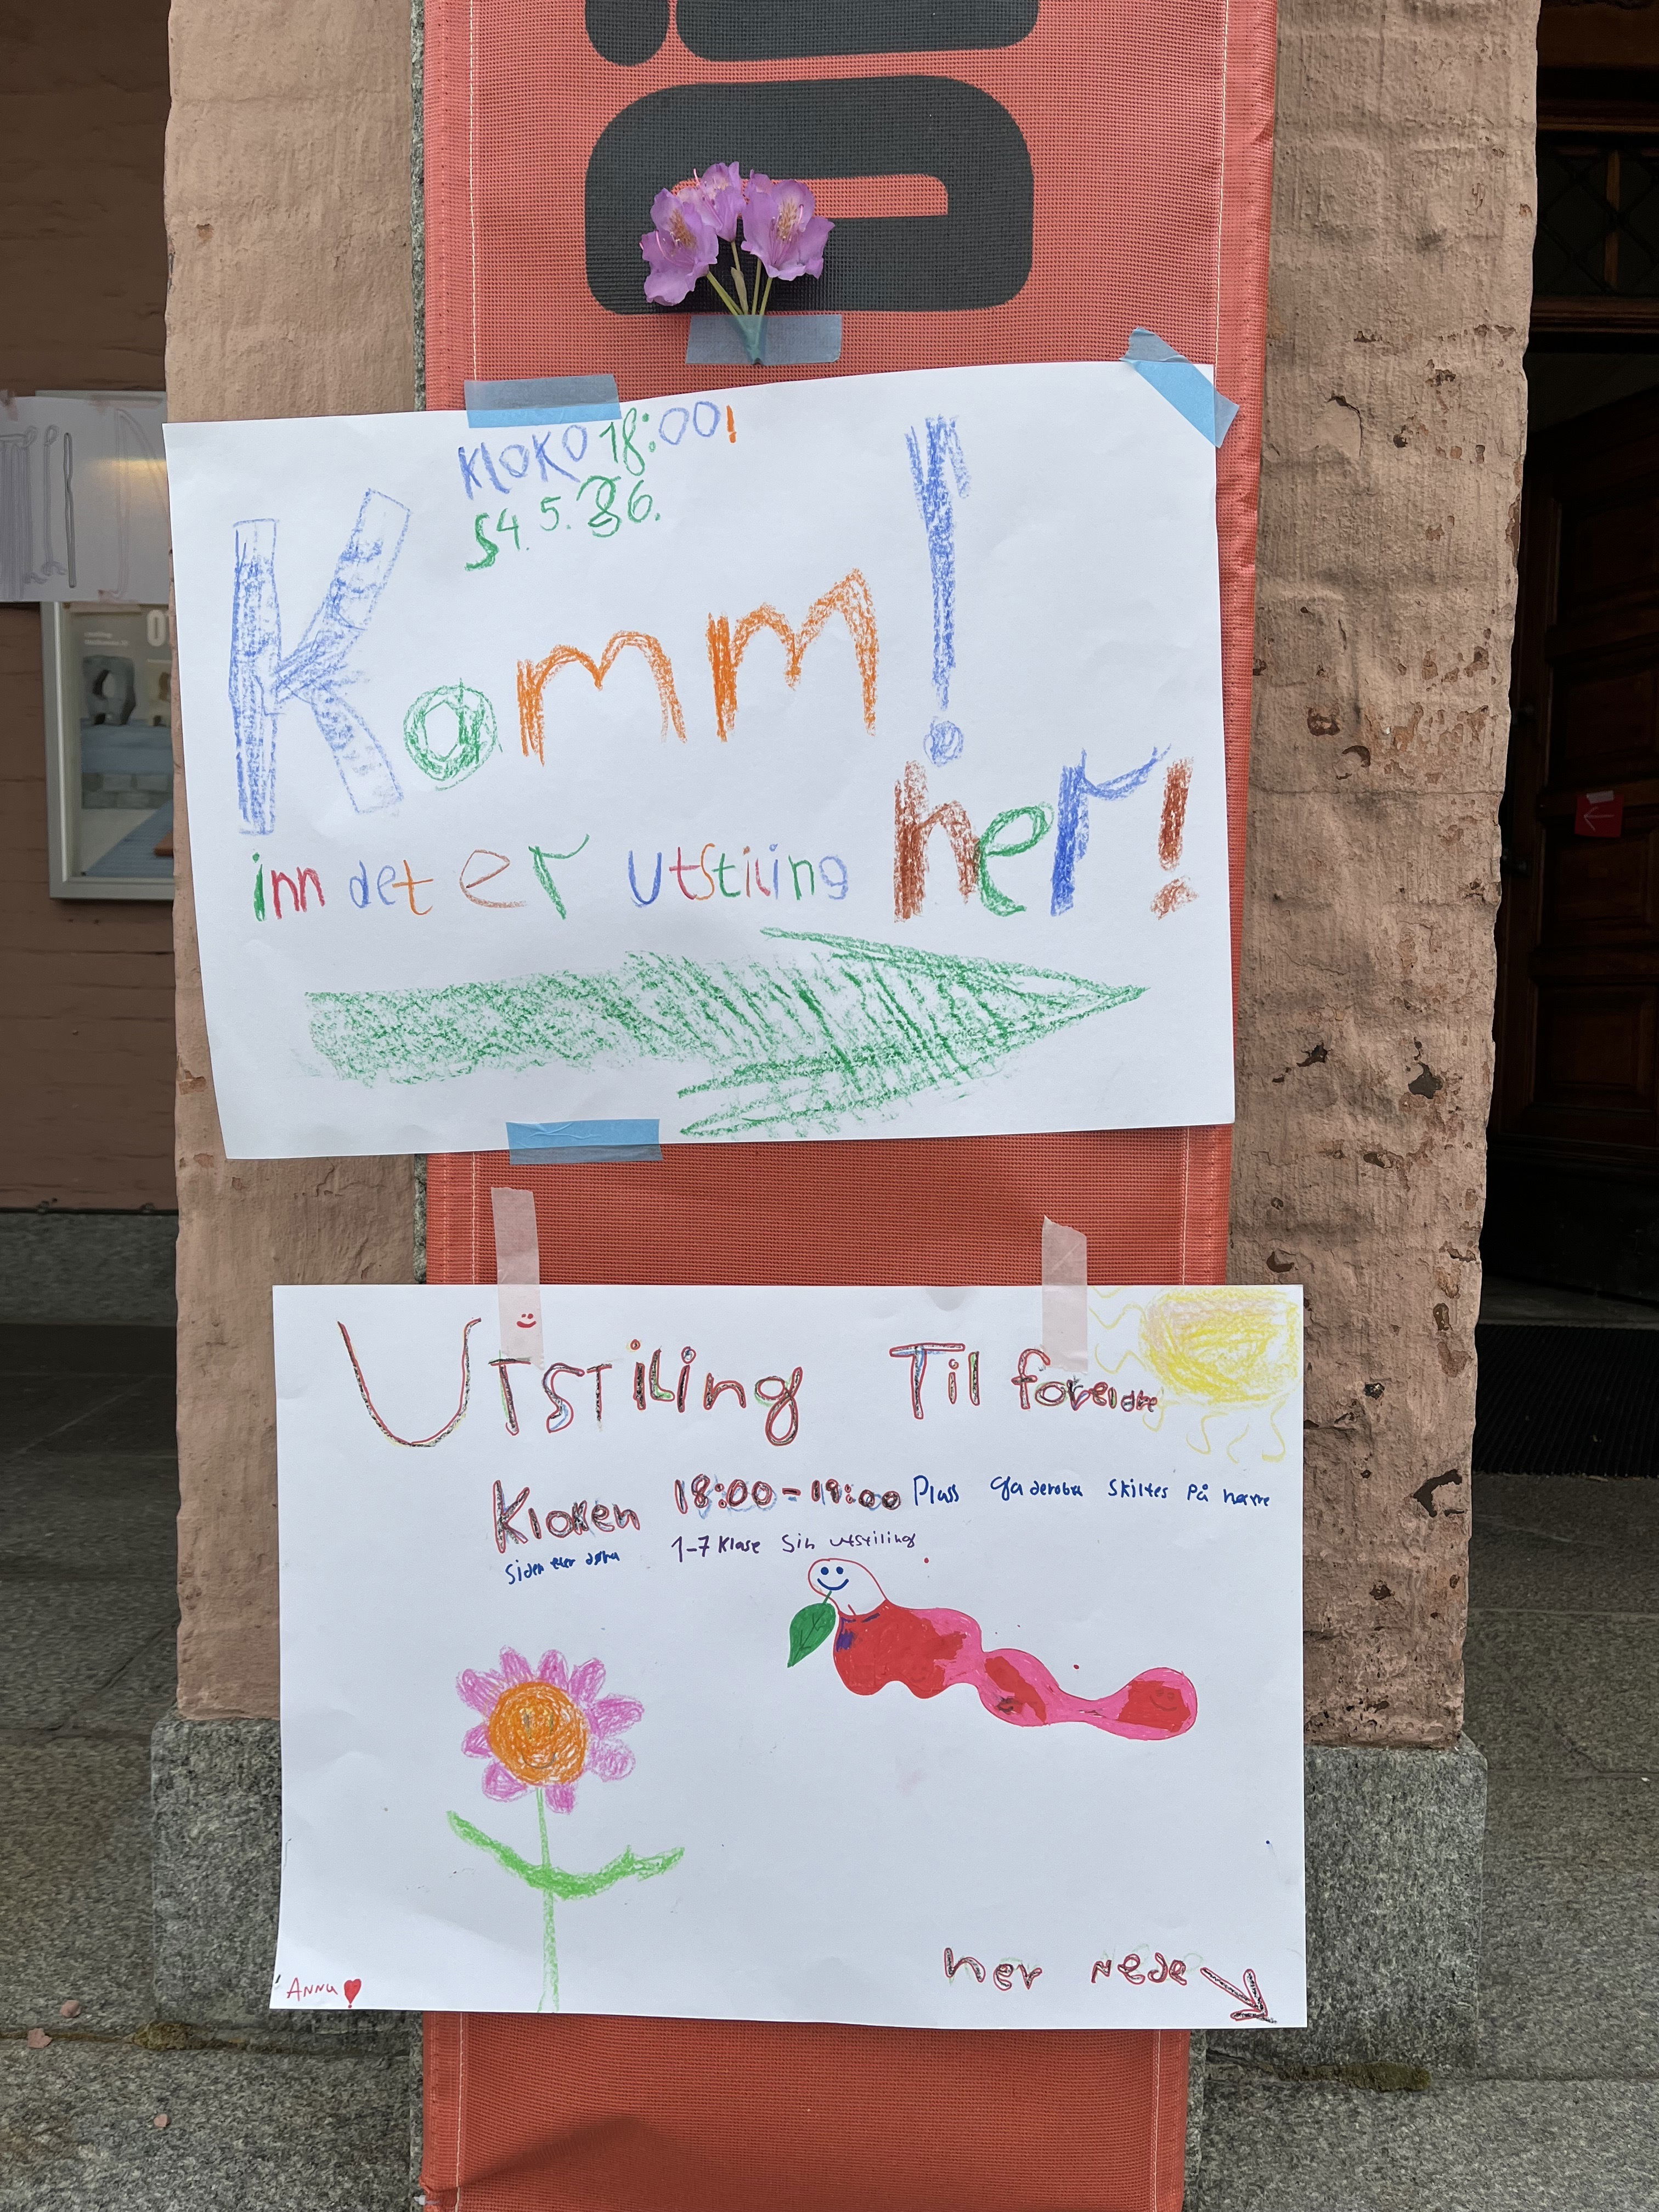 KlOKO 18:00!
Komm!
inn det er utstiling her!
UTSTiLing Til foreldre
Kloken 18:00-19:00 Plass Gaderoba skiltes på nærre
siden eller døra 1-7 Klase Sin utstiling
her nede
ANNU